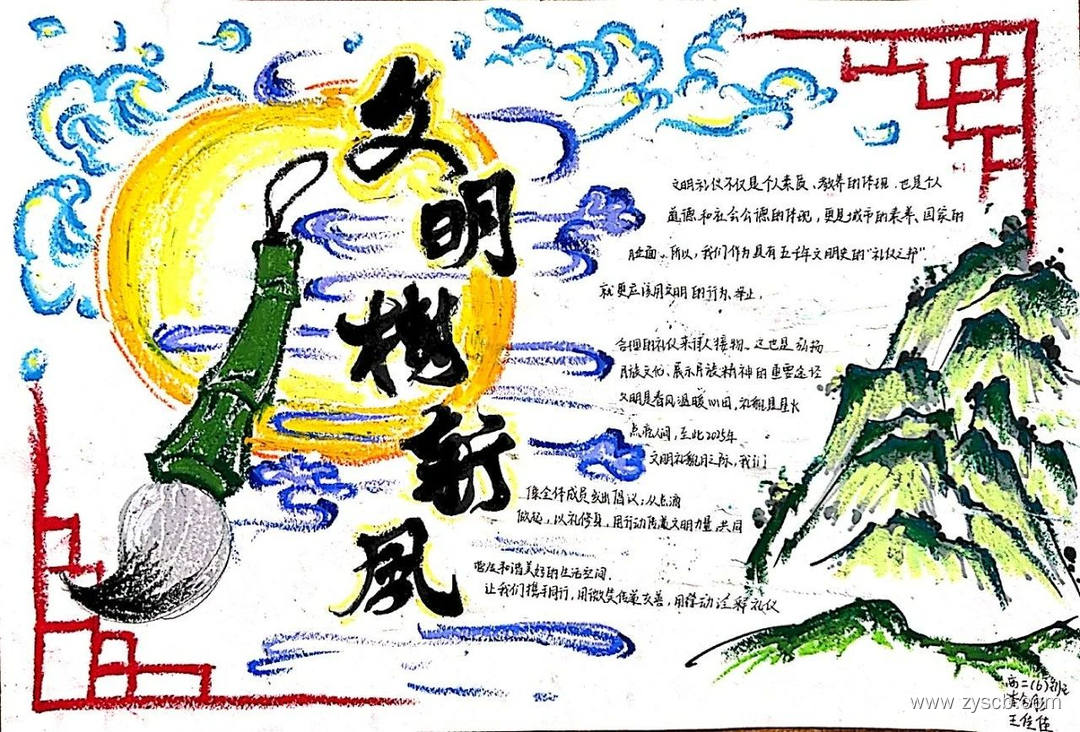 文明樹新風
文明礼仪不仅是个人素质、教养的体现，也是个人
道德和社会公德的体现，更是城市的素养、国家的
脸面。所以，我们作为具有五千年文明史的"礼仪之邦"
就更应该用文明的行为、举止，
合理的礼仪来待人接物。这也是弘扬
民族文化、展示民族精神的重要途径
文明是春风温暖心田，礼貌是星火
点亮人间，至此2025年
文明礼貌月之际，我们
像全体成员发出倡议：从点滴
做起，以礼修身，用行动传递文明力量 共同
营造和谐美好的生活空间.
让我们携手同行，用微笑传递友善，用行动诠释礼仪
高二(6)班
王佳佳
www.zyscb.com